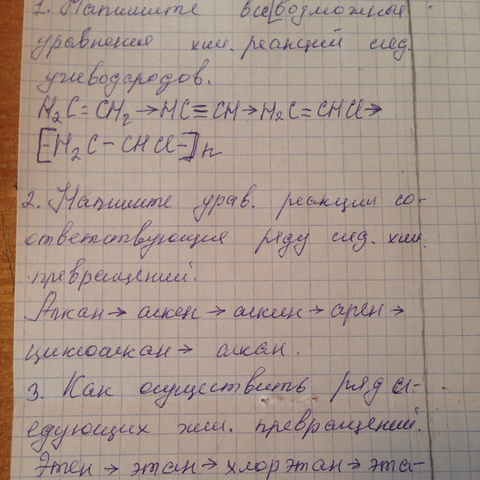 1. Напишите все возможные
уравнения хим. реакций след.
углеводородов.
H₂C=CH₂→HC≡CH→H₂C=CHCl→
[-H₂C-CHCl-]n
2. Напишите урав. реакции со-
ответствующия ряду след. хим.
превращений.
Алкан→ алкен → алкин → арен →
циклоалкан → алкан.
3. Как осуществить ряд сл-
едующих хим. превращений.
Этен → этан → хлорэтан → эта-